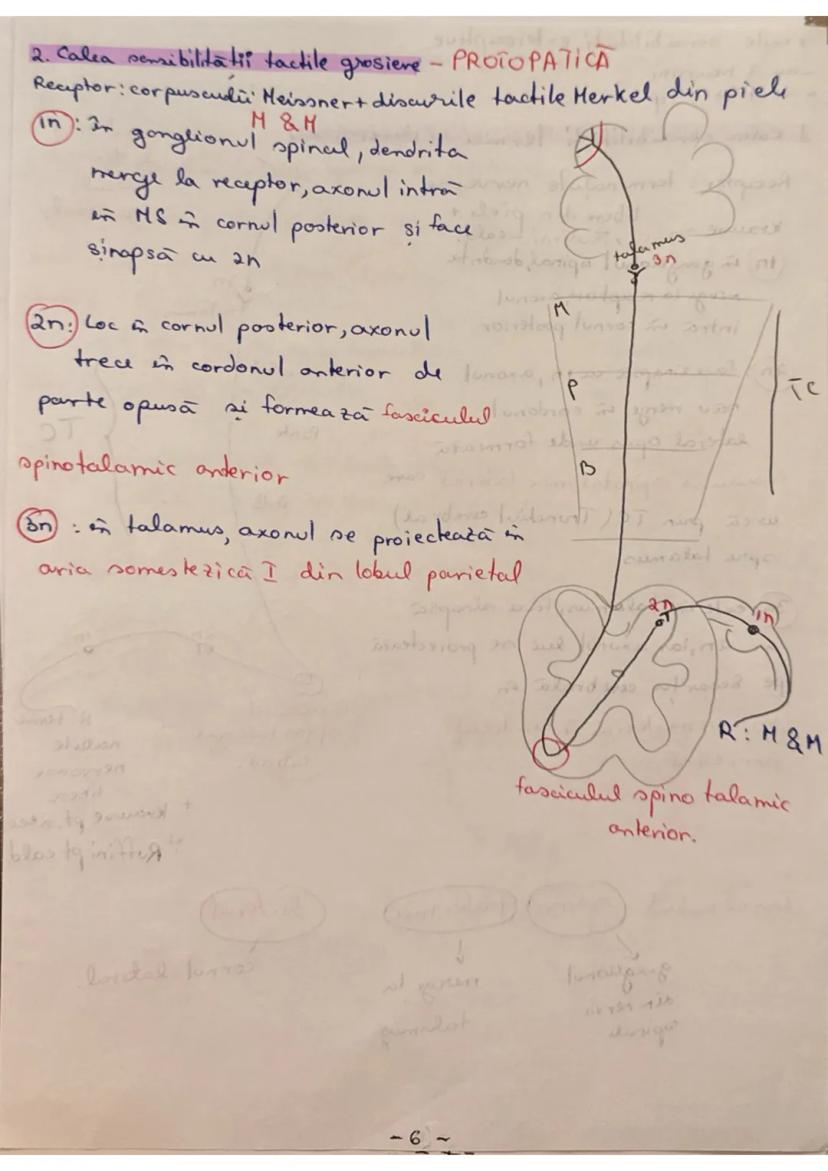 2. Calea sensibilității tactile grosiere - PROTOPATICĂ
Receptor: corpusculii Meissner + discurile tactile Merkel din piele
M & M
1n: În ganglionul spinal, dendrita
merge la receptor, axonul intră
în MS în cornul posterior și face
sinapsă cu 2n
2n: Loc în cornul posterior, axonul
trece în cordonul anterior de
parte opusă și formează fasciculul
spinotalamic anterior
3n: în talamus, axonul se proiectează în
aria somestezică I din lobul parietal
talamus
3n
M
P
B
TC
2n
1n
R: M & M
fasciculul spino talamic
anterior.
- 6 ~